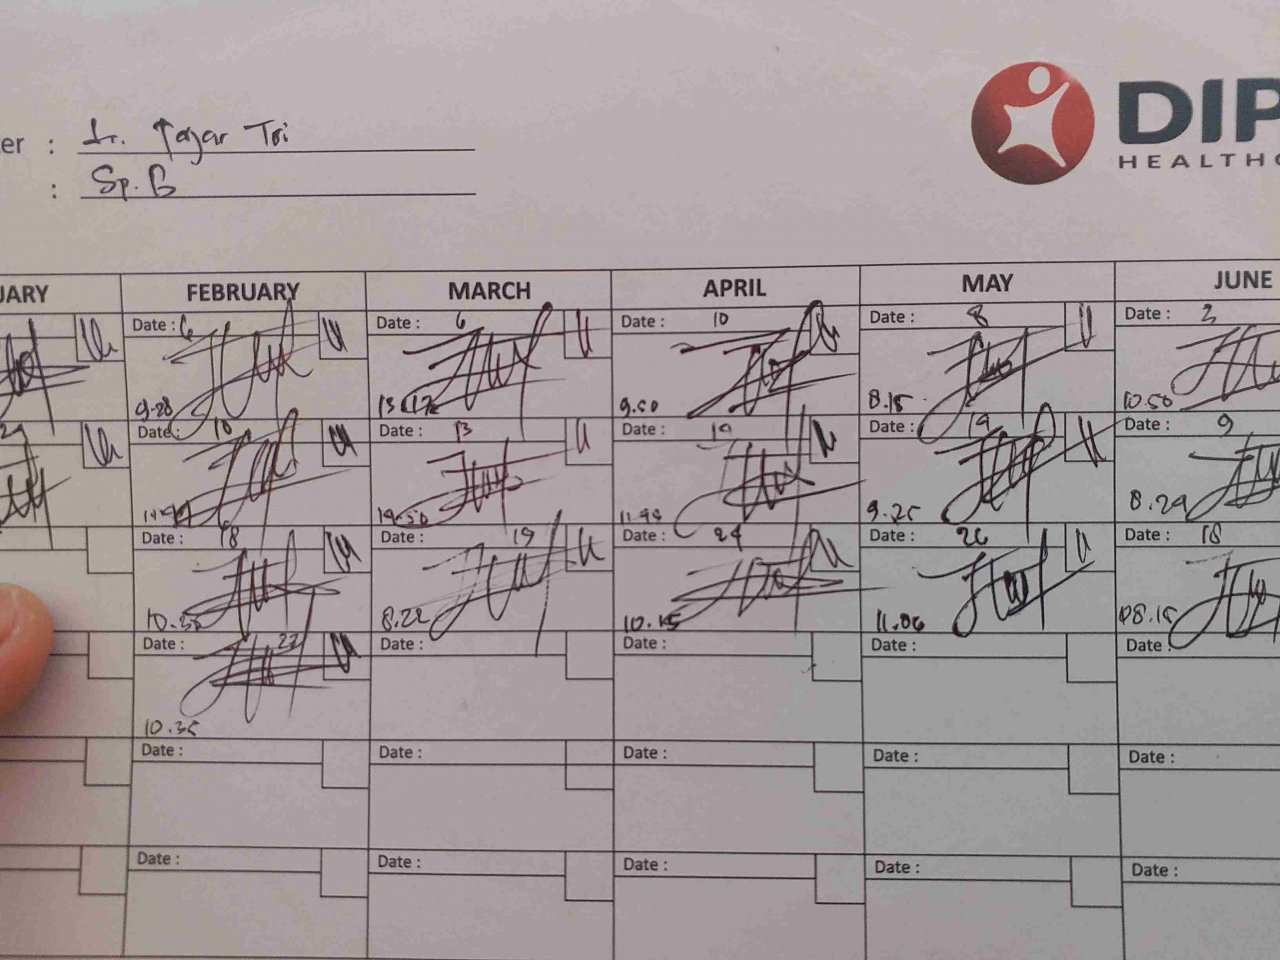 er : dr. Fajar Tri
: Sp. B
DIP
HEALTHC
UARY FEBRUARY MARCH APRIL MAY JUNE
Date : 6 Date : 6 Date : 10 Date : 8 Date : 3
9.28 9.50 8.15 10.50
Date : 10 Date : 13 Date : 19 Date : 19 Date : 9
19.50 9.25 8.29
Date : 18 Date : 19 Date : 24 Date : 26 Date : 18
10.35 8.22 10.15 11.06 08.15
Date : 27 Date : Date : Date : Date :
10.35
Date : Date : Date : Date : Date :
Date : Date : Date : Date : Date :